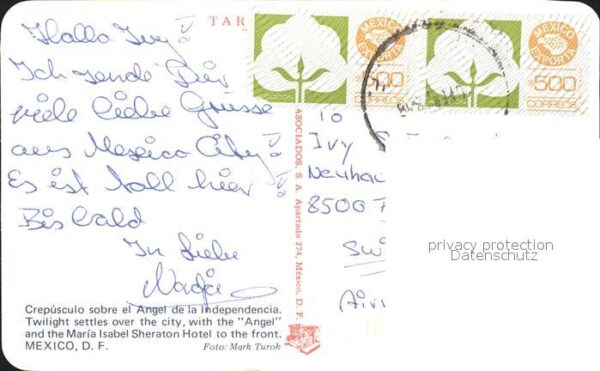 TAR
Hallo Ivy!
Ich sende Dir
viele liebe Grüsse
aus Mexico City!
Es ist toll hier
Bis bald
In Liebe
Nadja
MEXICO
EXPORTA
500
CORREOS
MEXICO
EXPORTA
500
CORREOS
ASOCIADOS, S. A. Apartado 274, México, D. F.
To
Ivy
Neuhau
8500 F
privacy protection
Datenschutz
Crepúsculo sobre el Angel de la Independencia.
Twilight settles over the city, with the "Angel"
and the María Isabel Sheraton Hotel to the front.
MEXICO, D. F. Foto: Mark Turok